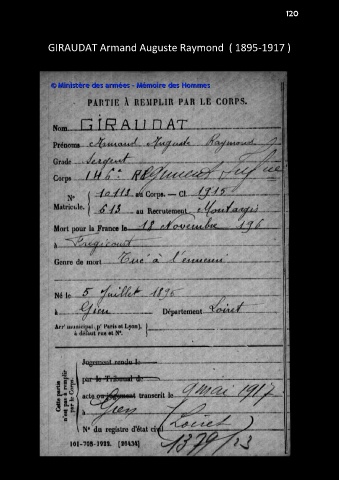 120
GIRAUDAT Armand Auguste Raymond ( 1895-1917 )
© Ministère des armées - Mémoire des Hommes
PARTIE À REMPLIR PAR LE CORPS.
Nom GIRAUDAT
Prénoms Armand Auguste Raymond
Grade Sergent
Corps 146e Régiment
N° 10113 au Corps. — Cl 1915
Matricule. 613 au Recrutement Montargis
Mort pour la France le 18 Novembre 196
à
Genre de mort Tué à l'ennemi
Né le 5 Juillet 1895
à Gien Département Loiret
Arr' municipal (p' Paris et Lyon),
à défaut rue et N°.
Cette partie
n'est pas à remplir
par le Corps.
Jugement rendu le
par le Tribunal de
acte ou jugement transcrit le 9 mai 1917
à Gien Loiret
N° du registre d'état civil 1379/23
101-708-1922. [26434]